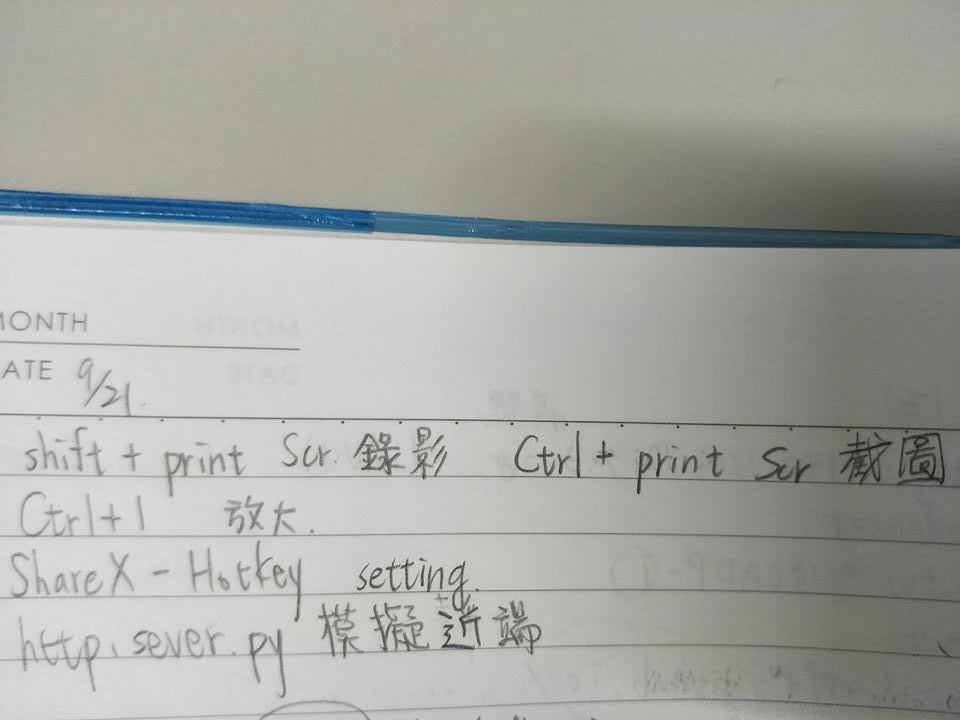 MONTH
DATE 9/21.
shift + print Scr. 錄影 Ctrl + print Scr 截圖
Ctrl+1 放大.
ShareX - Hotkey setting.
http.sever.py 模擬近端